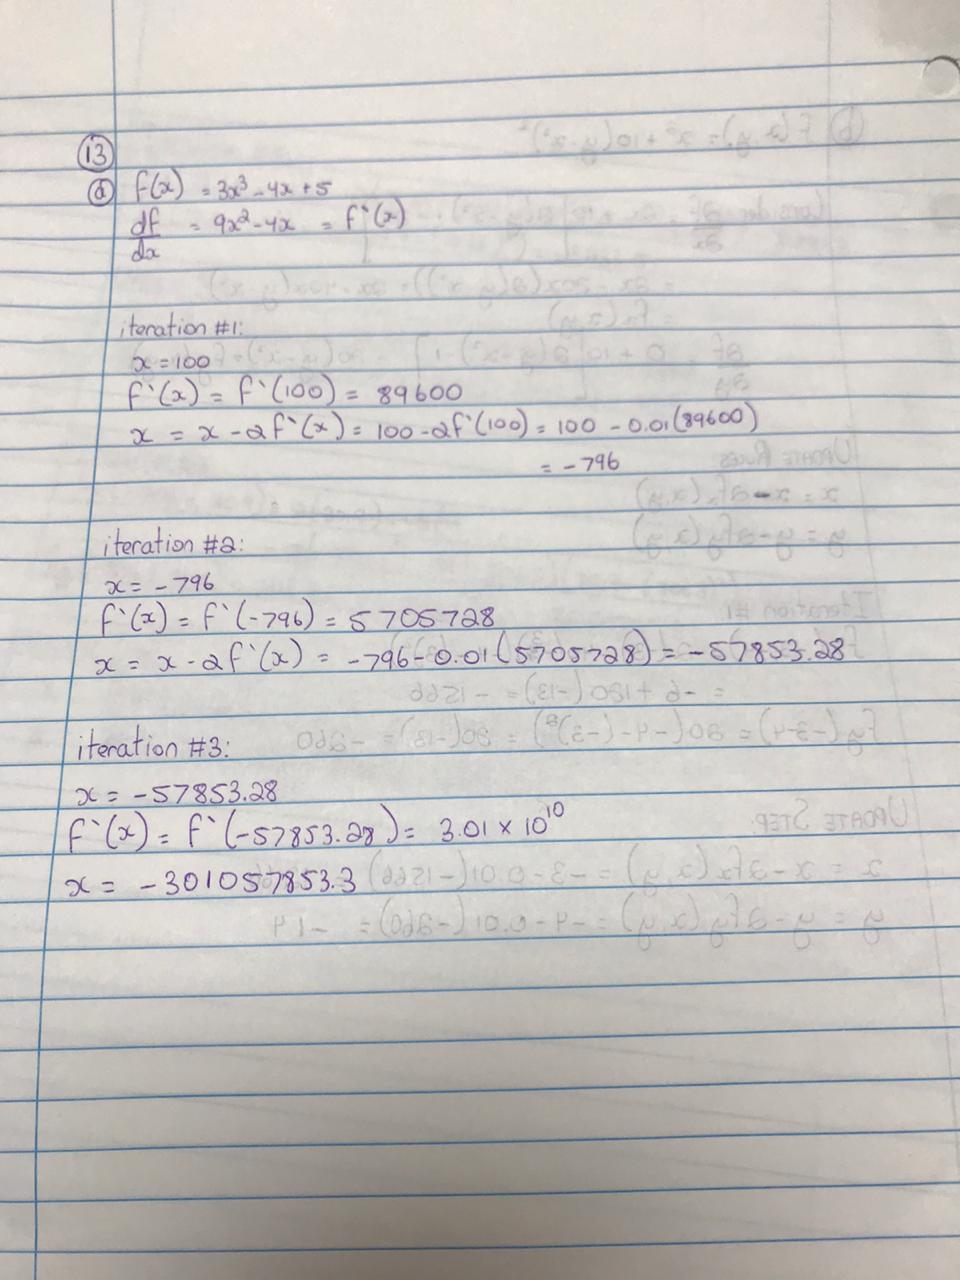 13
a f(x) = 3x³ - 4x + 5
df/dx = 9x² - 4x = f`(x)
iteration #1:
x = 100
f`(x) = f`(100) = 89600
x = x - 2f`(x) = 100 - 2f`(100) = 100 - 0.01(89600)
= -796
iteration #2:
x = -796
f`(x) = f`(-796) = 5705728
x = x - 2f`(x) = -796 - 0.01(5705728) = -57853.28
iteration #3:
x = -57853.28
f`(x) = f`(-57853.28) = 3.01 x 10¹⁰
x = -301057853.3